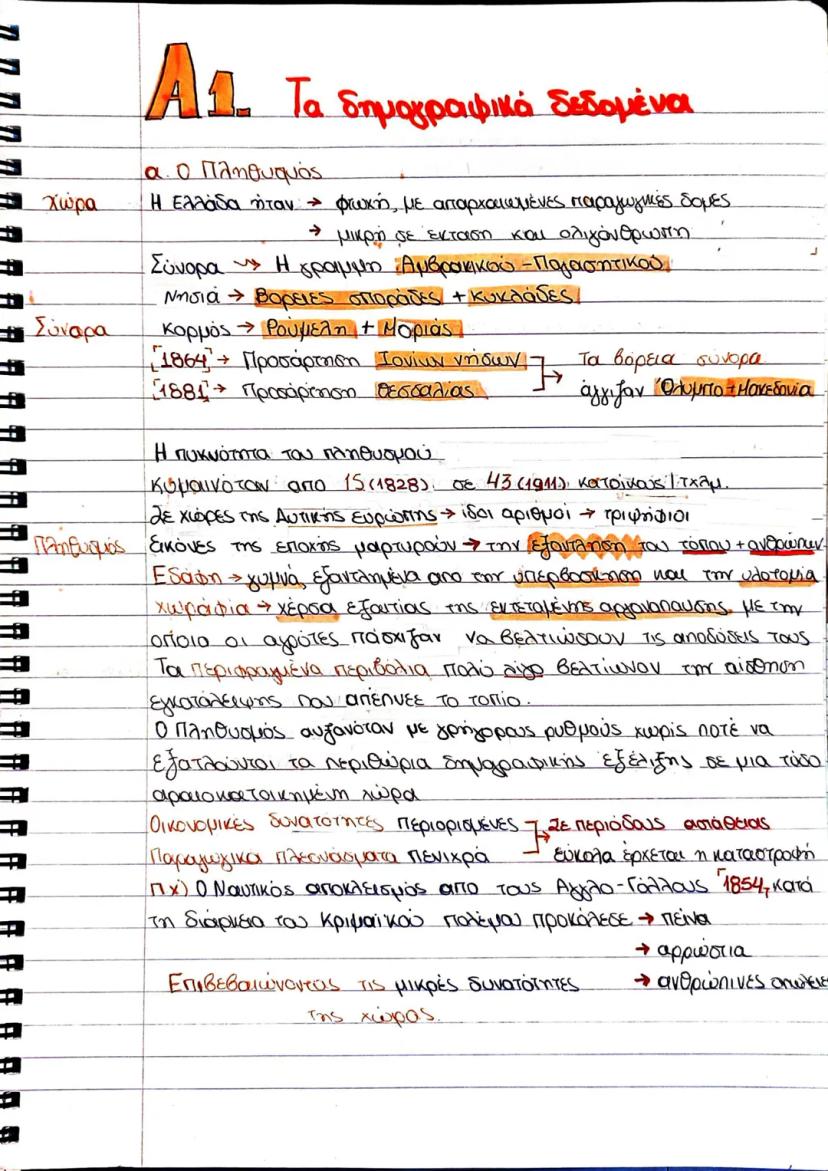 Α1. Τα δημογραφικά δεδομένα
α. Ο Πληθυσμός
Χώρα Η Ελλάδα ήταν → φτωχή, με απαρχαιωμένες παραγωγικές δομές
→ μικρή σε έκταση και ολιγάνθρωπη
Σύνορα → Η γραμμη Αμβρακικού-Παγασητικού
Νησιά → Βόρειες σποράδες + Κυκλάδες
Σύνορα Κορμός → Ρούμελη + Μοριάς
[1864] → Προσάρτηση Ιονίων νήσων → Τα βόρεια σύνορα
[1881] → Προσάρτηση Θεσσαλίας άγγιζαν Όλυμπο + Μακεδονία
Η πυκνότητα του πληθυσμού
Κυμαινόταν απο 15 (1828) σε 43 (1911) κατοίκους / τχλμ.
Σε χώρες της Δυτικής Ευρώπης → ίδοι αριθμοί → τριψήφιοι
Πληθυσμός εικόνες της εποχής μαρτυρούν → την εξάντληση του τόπου + ανθρώπων
Εδάφη → γυμνά, εξαντλημένα απο την υπερβοσκηση και την υλοτομία
χωράφια → χέρσα εξαιτίας της εντεταμένης αγρανάπαυσης, με την
οποία οι αγρότες πάσχιζαν να βελτιώσουν τις αποδόσεις τους
Τα περιφραγμένα περιβόλια πολύ λίγο βελτίωναν την αίσθηση
εγκατάλειψης που απέπνεε το τοπίο.
Ο Πληθυσμός αυξανόταν με γρήγορους ρυθμούς χωρίς ποτέ να
εξατλούνται τα περιθώρια δημογραφικής εξέλιξης σε μια τόσο
αραιοκατοικημένη χώρα
Οικονομικές δυνατότητες περιορισμένες → Σε περιόδους αστάθειας
Παραγωγικά πλεονάσματα πενιχρά εύκολα έρχεται η καταστροφή
π.χ) Ο Ναυτικός αποκλεισμός απο τους Αγγλο-Γάλλους [1854], κατά
τη διάρκεια του Κριμαϊκού πολέμου προκάλεσε → πείνα
→ αρρώστια
Επιβεβαιώνοντας τις μικρές δυνατότητες → ανθρώπινες απώλειε
της χώρας.